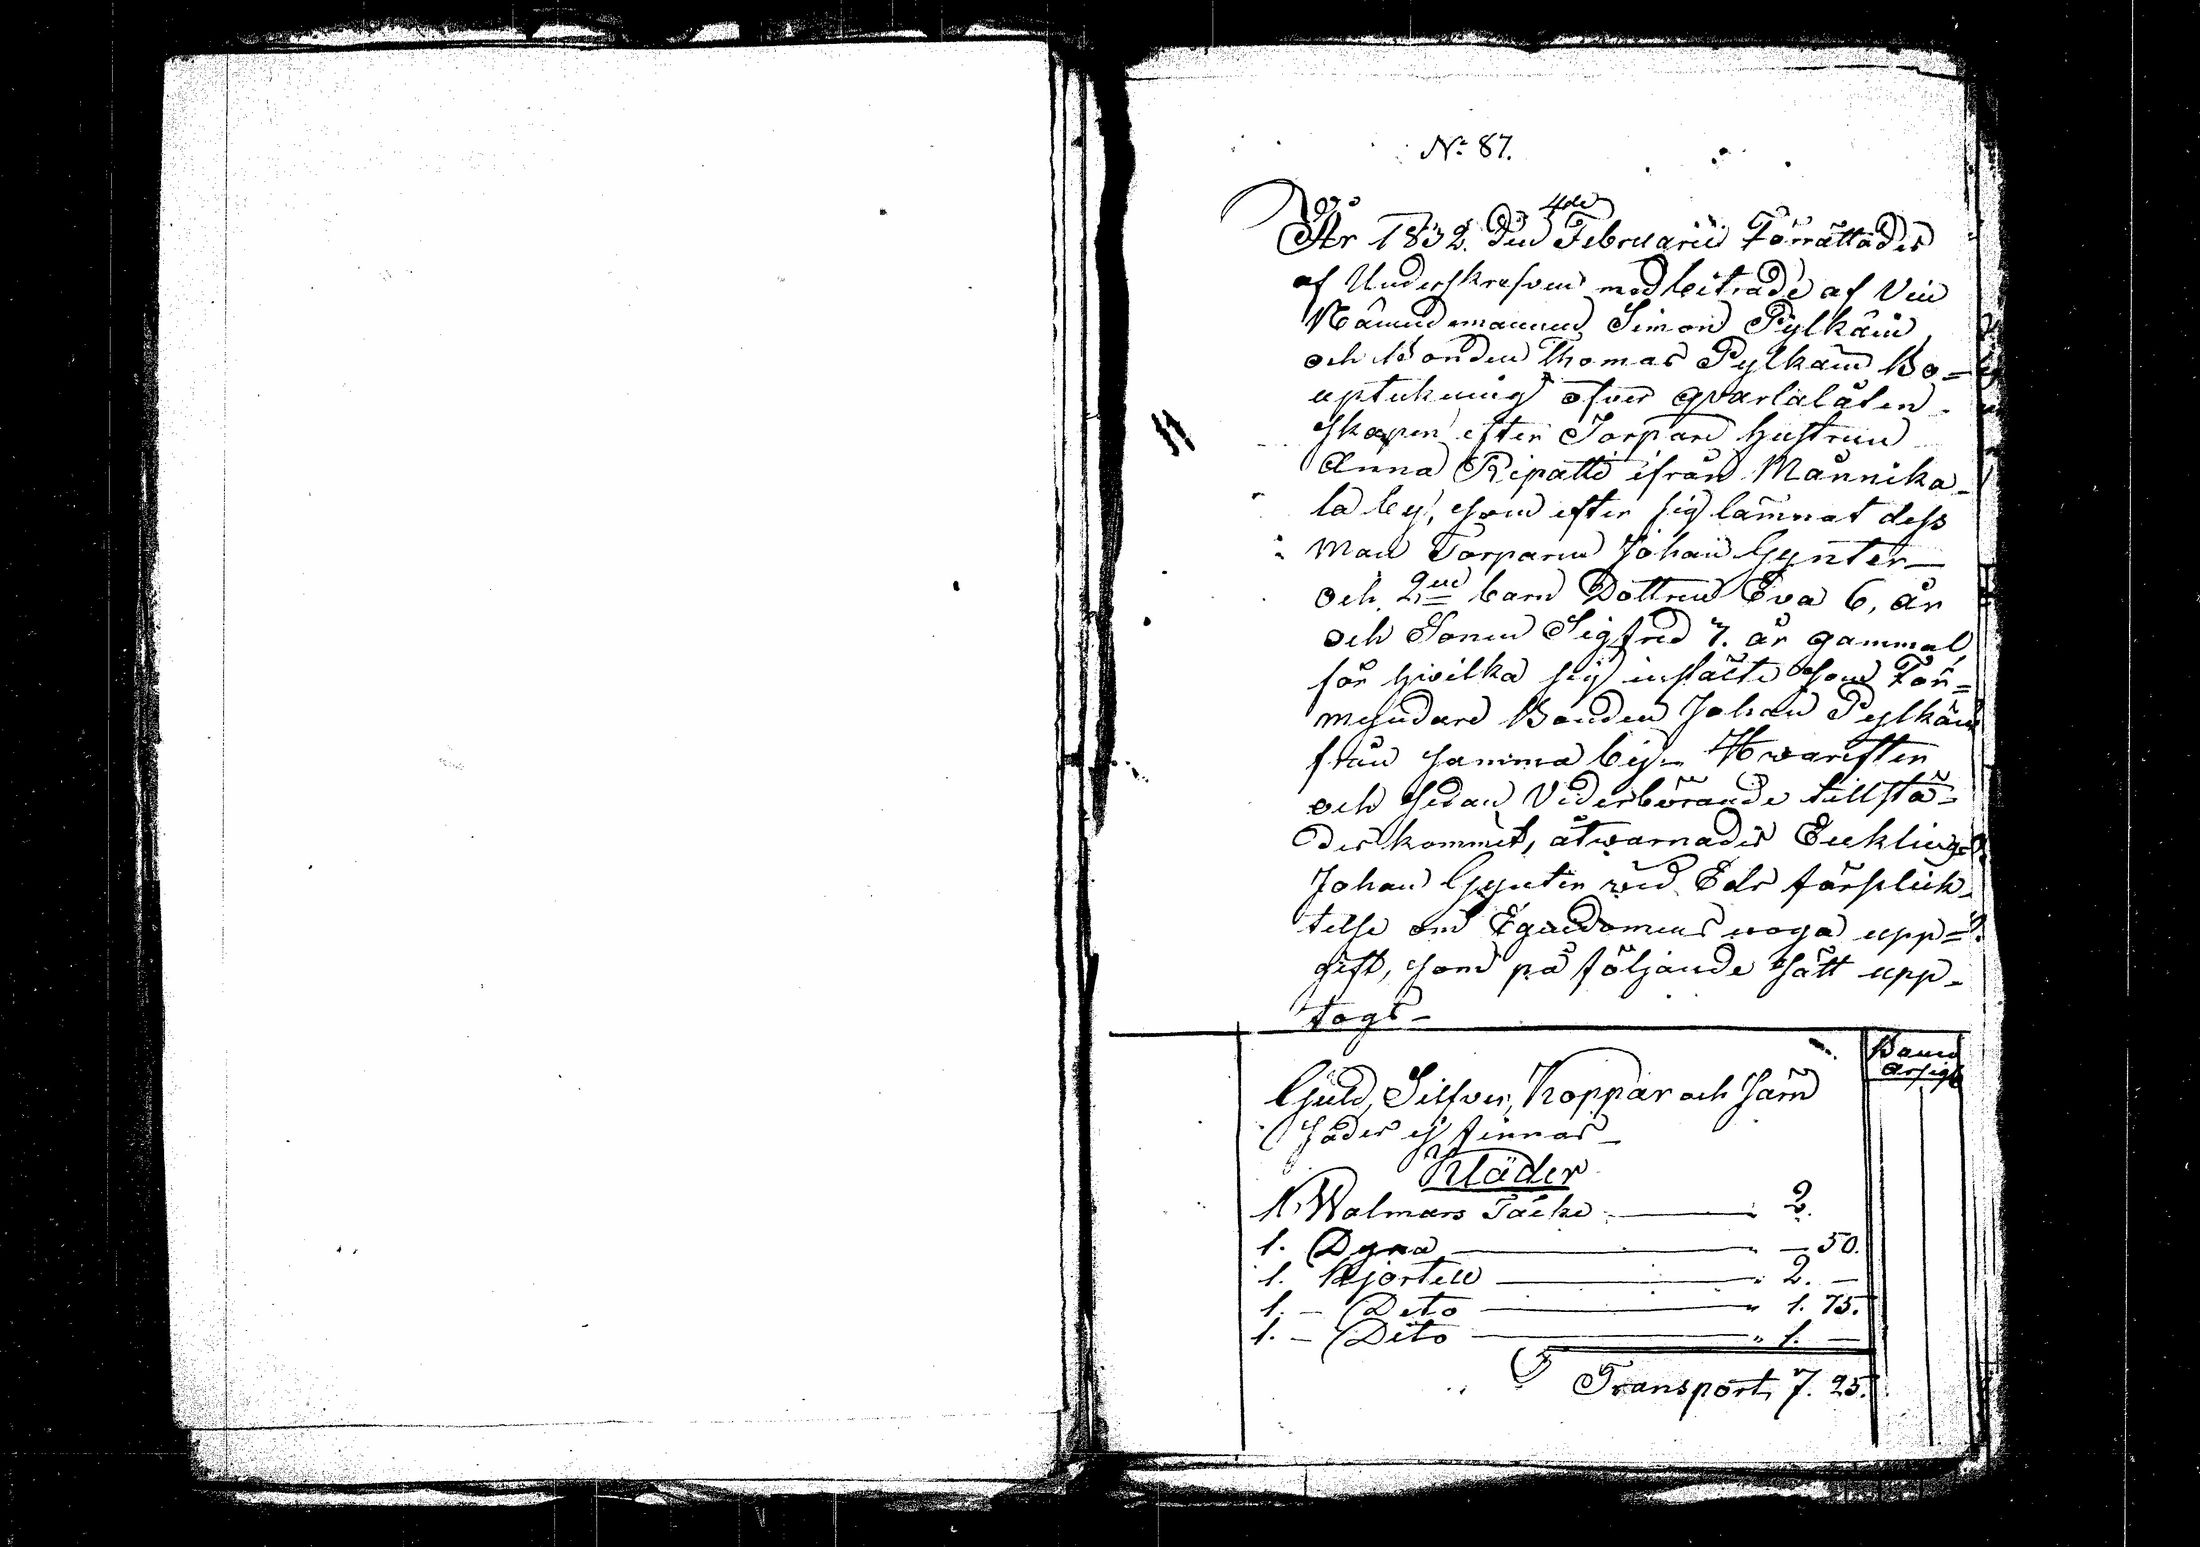 No 87.
År 1832. den 4de Februarii Förrättades
af Underskrefven med biträde af
Nämndemannen Simon Pylkäin
och Bonden Thomas Pylkäin Bo=
uptekning öfver qvarlåten-
skapen efter Torpare hustrun
Anna Ripatti ifrån Mannika-
la by, som efter sig lämnat dess
Man Torparen Johan Gynter
och 2ne barn Dottren Eva 6, år
och Sonen Sigfred 7. år gammal,
för hvilka sig instälte som För=
myndare Bonden Johan Pylkäin
från samma by - Hwarefter
och sedan Vederbörande tillstä-
des kommit, åtwarnades Encklingen
Johan Gynter wid Eds förplick-
telse om Egendomens noga upp=
gift, som på följande sätt upp-
togs -
Barns
Arfsgt
Guld, Silfver, Koppar och Järn
Saker ej finnas -
Kläder
1. Walmars Täcke 2.
1. Dyna — 50.
1. Kjortell 2. —
1. — Dito 1. 75.
1. — Dito 1. —
Transport, 7. 25.